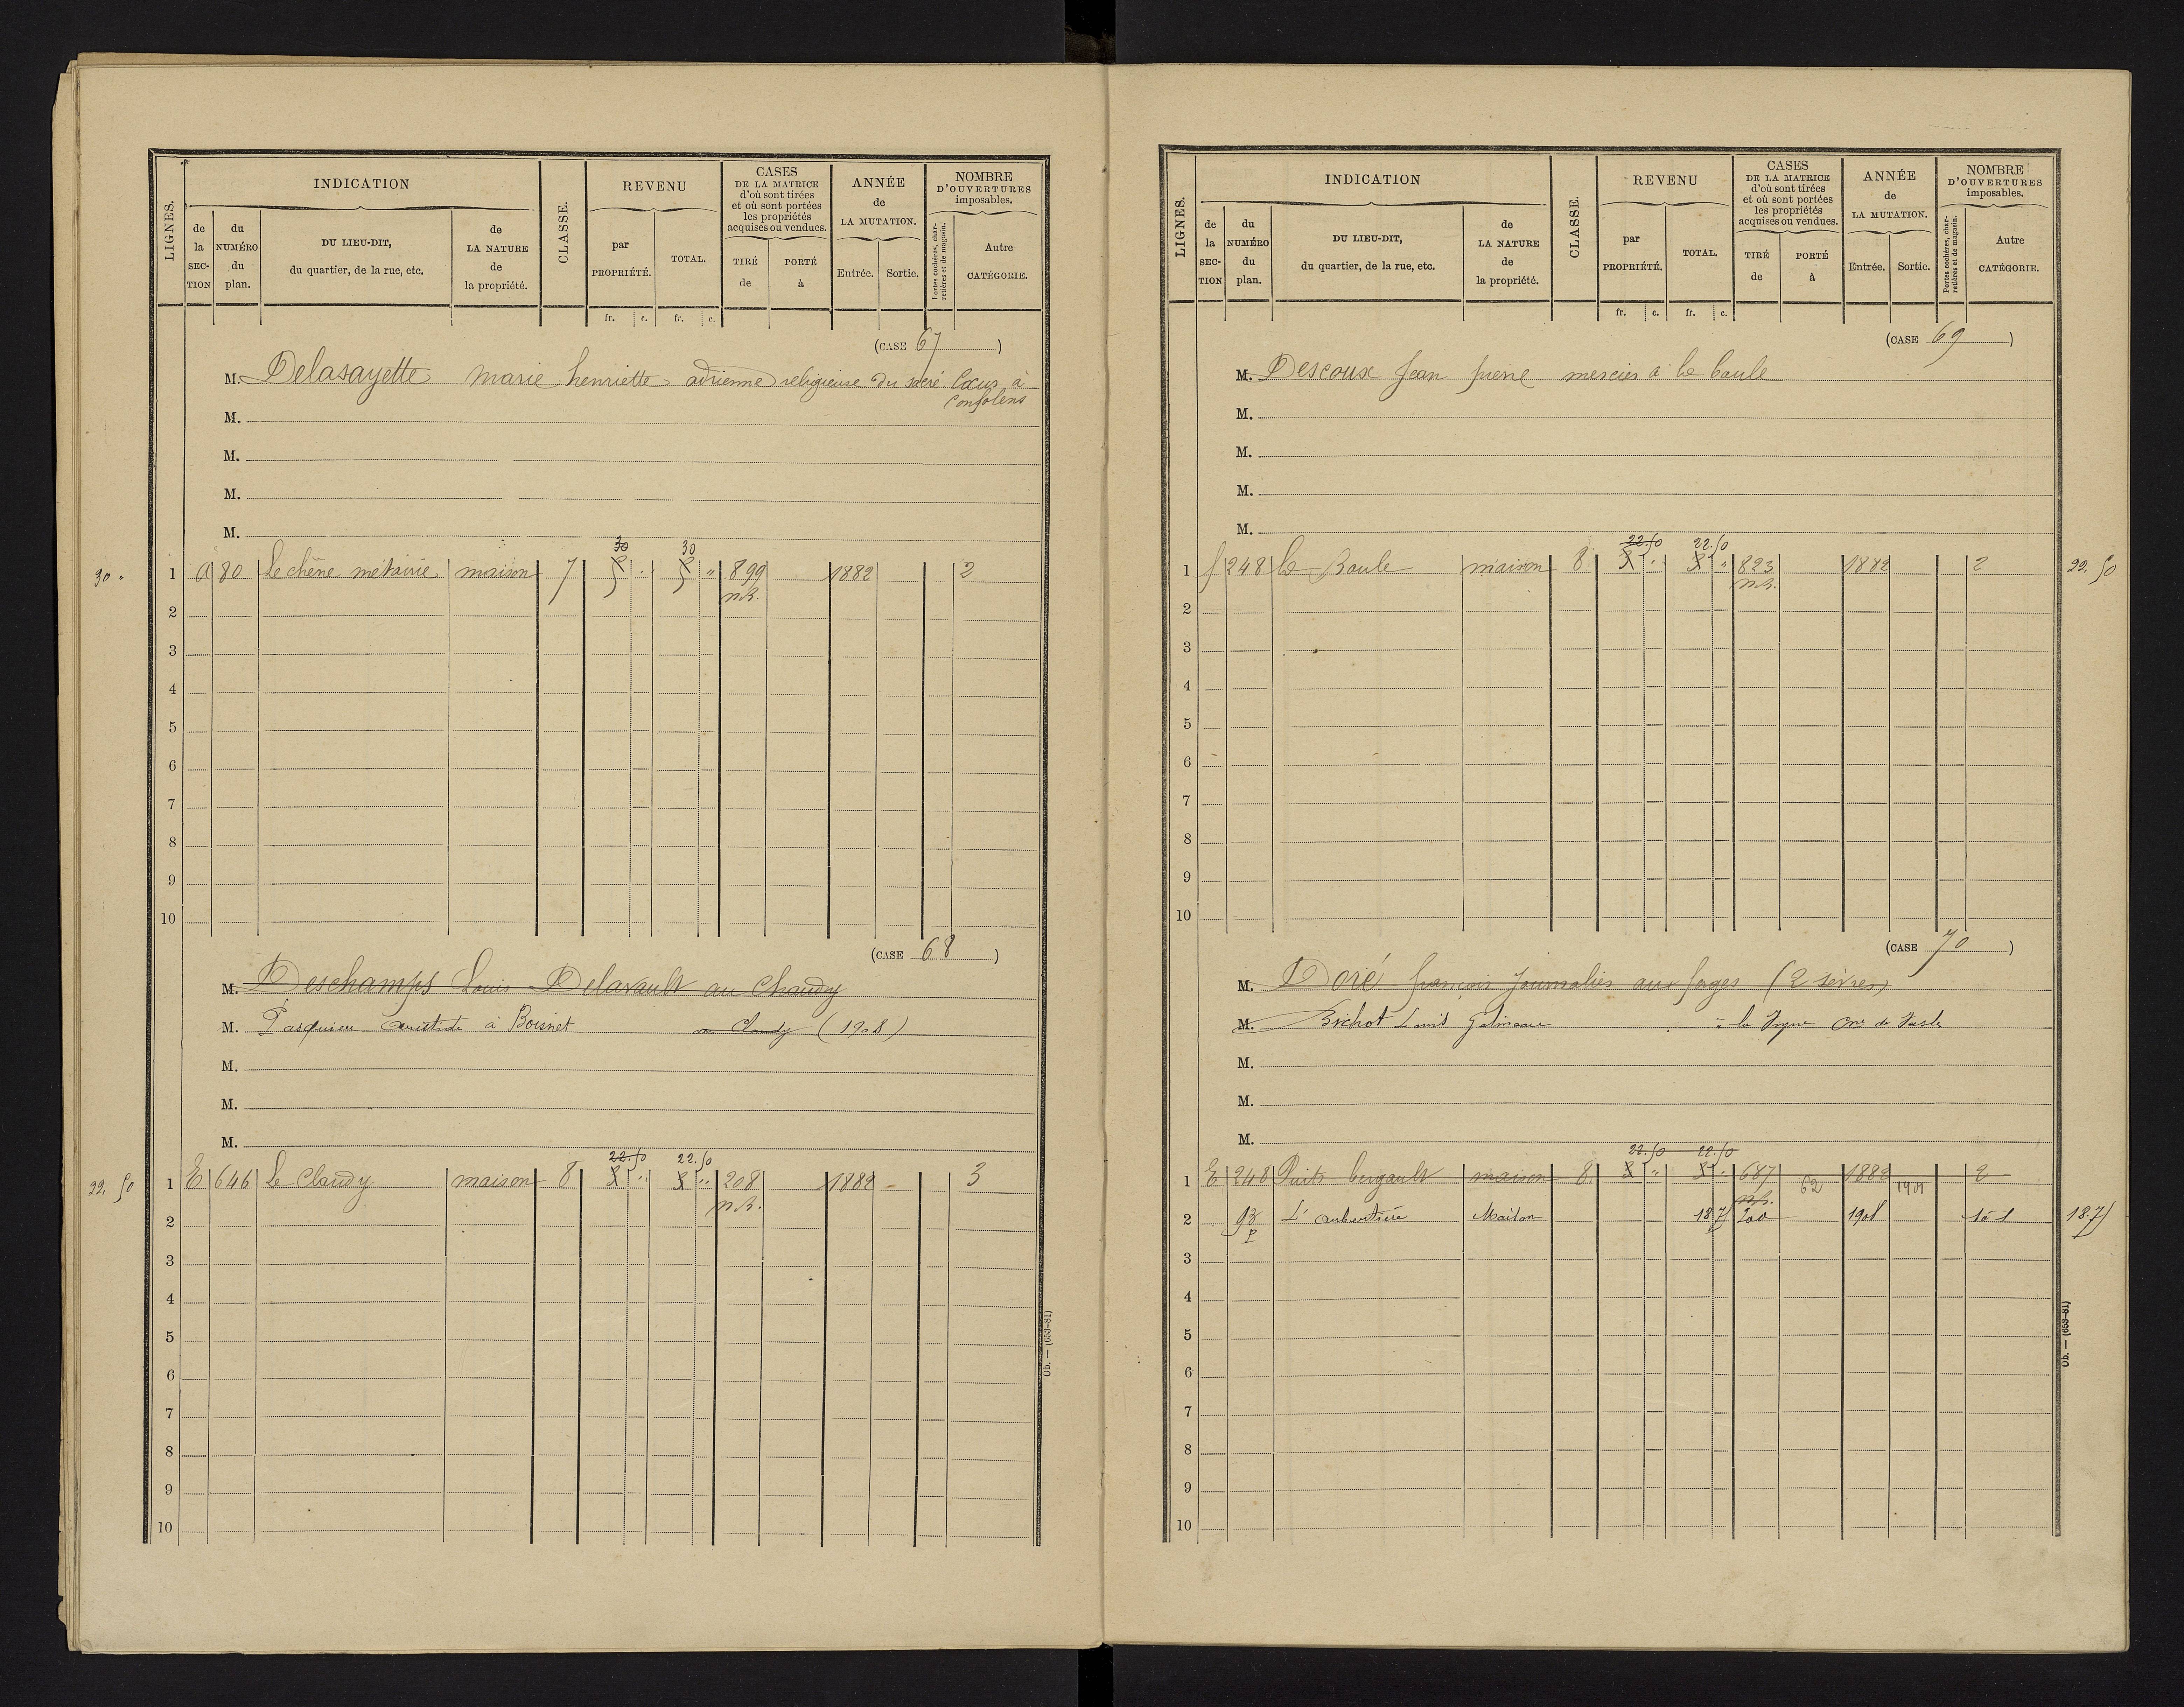 LIGNES.
INDICATION
de la SECTION
du NUMÉRO du plan.
DU LIEU-DIT, du quartier, de la rue, etc.
de LA NATURE de la propriété.
CLASSE.
REVENU
par PROPRIÉTÉ.
TOTAL.
CASES DE LA MATRICE d'où sont tirées et où sont portées les propriétés acquises ou vendues.
TIRÉ de
PORTÉ à
ANNÉE de LA MUTATION.
Entrée.
Sortie.
NOMBRE D'OUVERTURES imposables.
Portes cochères, charretières et de magasin.
Autre CATÉGORIE.
fr. c. fr. c.
(CASE 67)
M. Delasayette marie henriette adrienne religieuse du sacré Cœur à
Confolens
M.
M.
M.
M.
30 30
30 " 1 A 80 Le chêne métairie maison 7 5 " 5 " 899 1882 2
n.b.
2
3
4
5
6
7
8
9
10
(CASE 68)
M. Deschamps Louis Delavault au Chaudy
M. Pasquier à Boisnet au Claudy (1908)
M.
M.
M.
22.50 22.50
22.50 1 E 646 Le Claudy maison 8 3 " 3 " 208 1882 3
n.b.
2
3
4
5
6
7
8
9
10
Ob. — (653-81)
LIGNES.
INDICATION
de la SECTION
du NUMÉRO du plan.
DU LIEU-DIT, du quartier, de la rue, etc.
de LA NATURE de la propriété.
CLASSE.
REVENU
par PROPRIÉTÉ.
TOTAL.
CASES DE LA MATRICE d'où sont tirées et où sont portées les propriétés acquises ou vendues.
TIRÉ de
PORTÉ à
ANNÉE de LA MUTATION.
Entrée.
Sortie.
NOMBRE D'OUVERTURES imposables.
Portes cochères, charretières et de magasin.
Autre CATÉGORIE.
fr. c. fr. c.
(CASE 69)
M. Descoux Jean pierre mercier à la baule
M.
M.
M.
M.
22.50 22.50
1 f 248 la Baule maison 8 3 " 3 " 823 1882 2 22.50
n.b.
2
3
4
5
6
7
8
9
10
(CASE 70)
M. Doré françois Journalier aux forges (2 sèvres)
M. Brichot Louis Gelineau la Vigne
M.
M.
M.
22.50 22.50
1 E 248 Puits bergault maison 8 3 " 3 " 687 62 1882 1901 2
n.b.
2 93 p L'aubertière Maison 18.75 200 1901 1 18.75
3
4
5
6
7
8
9
10
Ob. — (653-81)